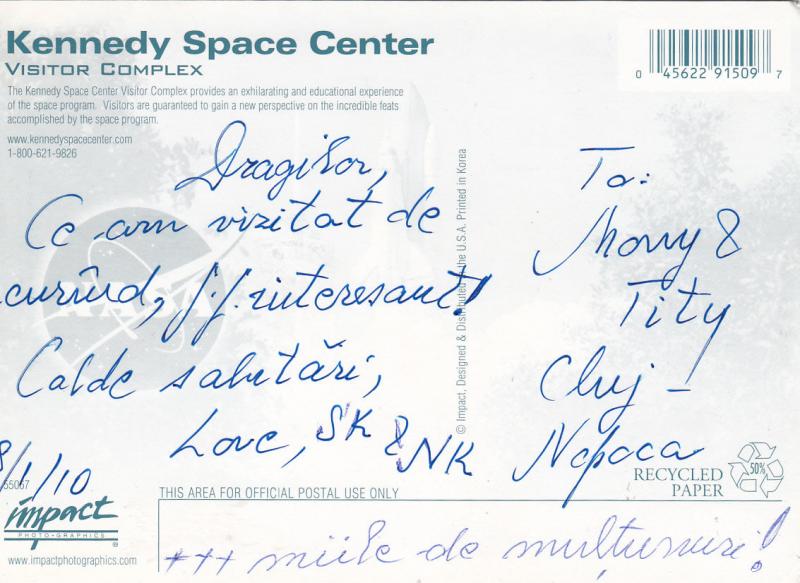 Kennedy Space Center
VISITOR COMPLEX
The Kennedy Space Center Visitor Complex provides an exhilarating and educational experience
of the space program. Visitors are guaranteed to gain a new perspective on the incredible feats
accomplished by the space program.
www.kennedyspacecenter.com
1-800-621-9826
0 45622 91509 7
Dragilor,
Ce am vizitat de
curînd, f.f. interesant!
Calde salutări,
Love, SK & NK
8/1/10
© Impact, Designed & Distributed in the U.S.A. Printed in Korea
To:
&
Tity
Cluj-
Napoca
NASA
55067
impact
PHOTO-GRAPHICS
®
www.impactphotographics.com
RECYCLED
PAPER
50%
THIS AREA FOR OFFICIAL POSTAL USE ONLY
+++ miile de mulțumiri!